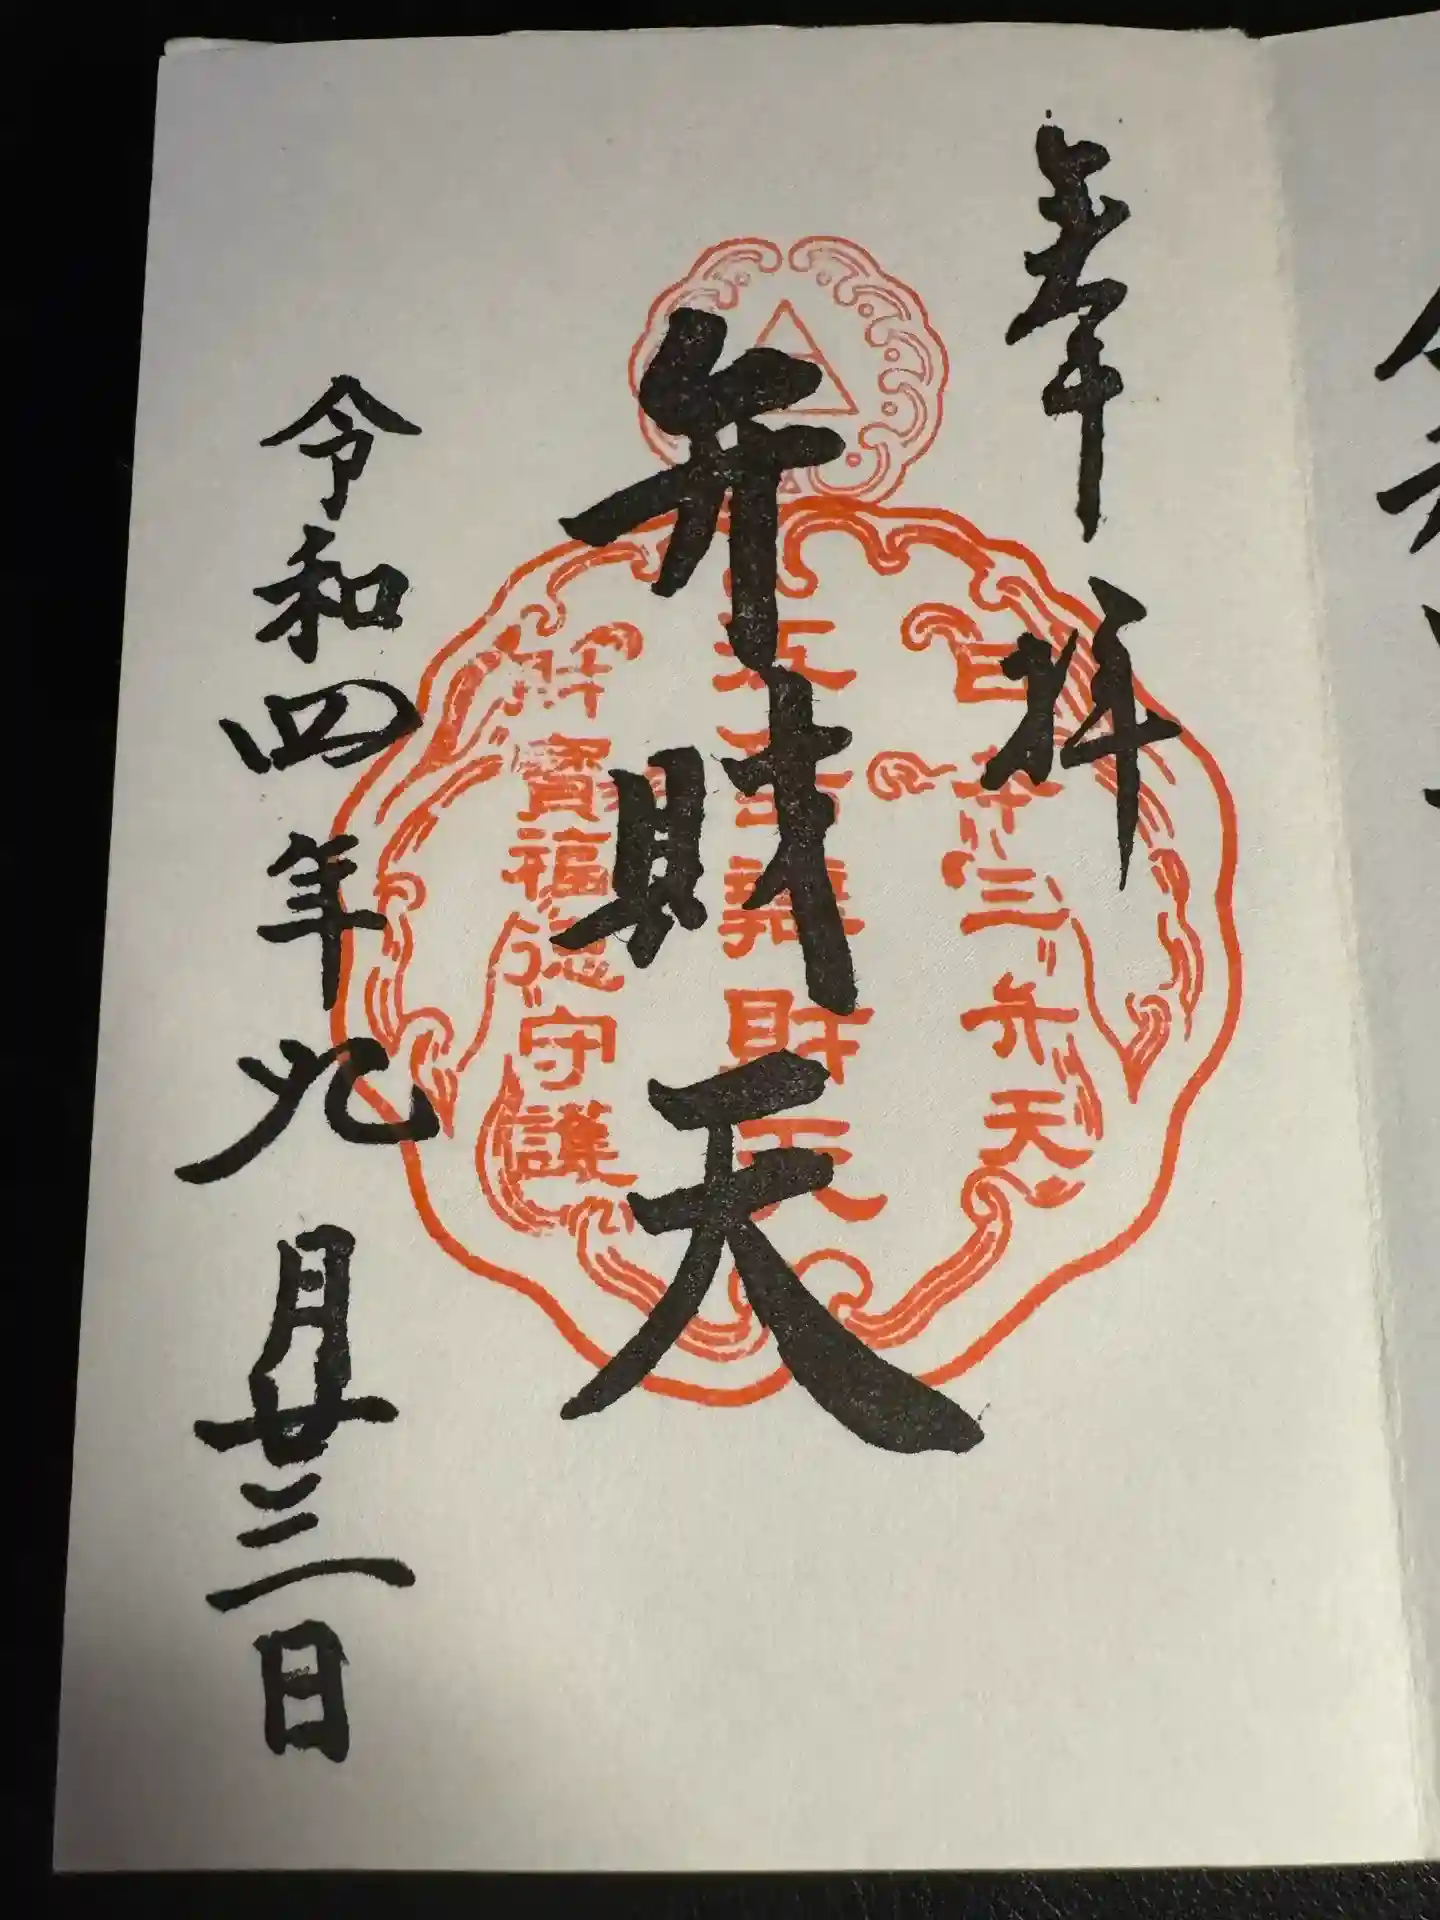 奉拝
日本三弁天
江島辨財天
財寶福徳守護
弁財天
令和四年九月廿三日